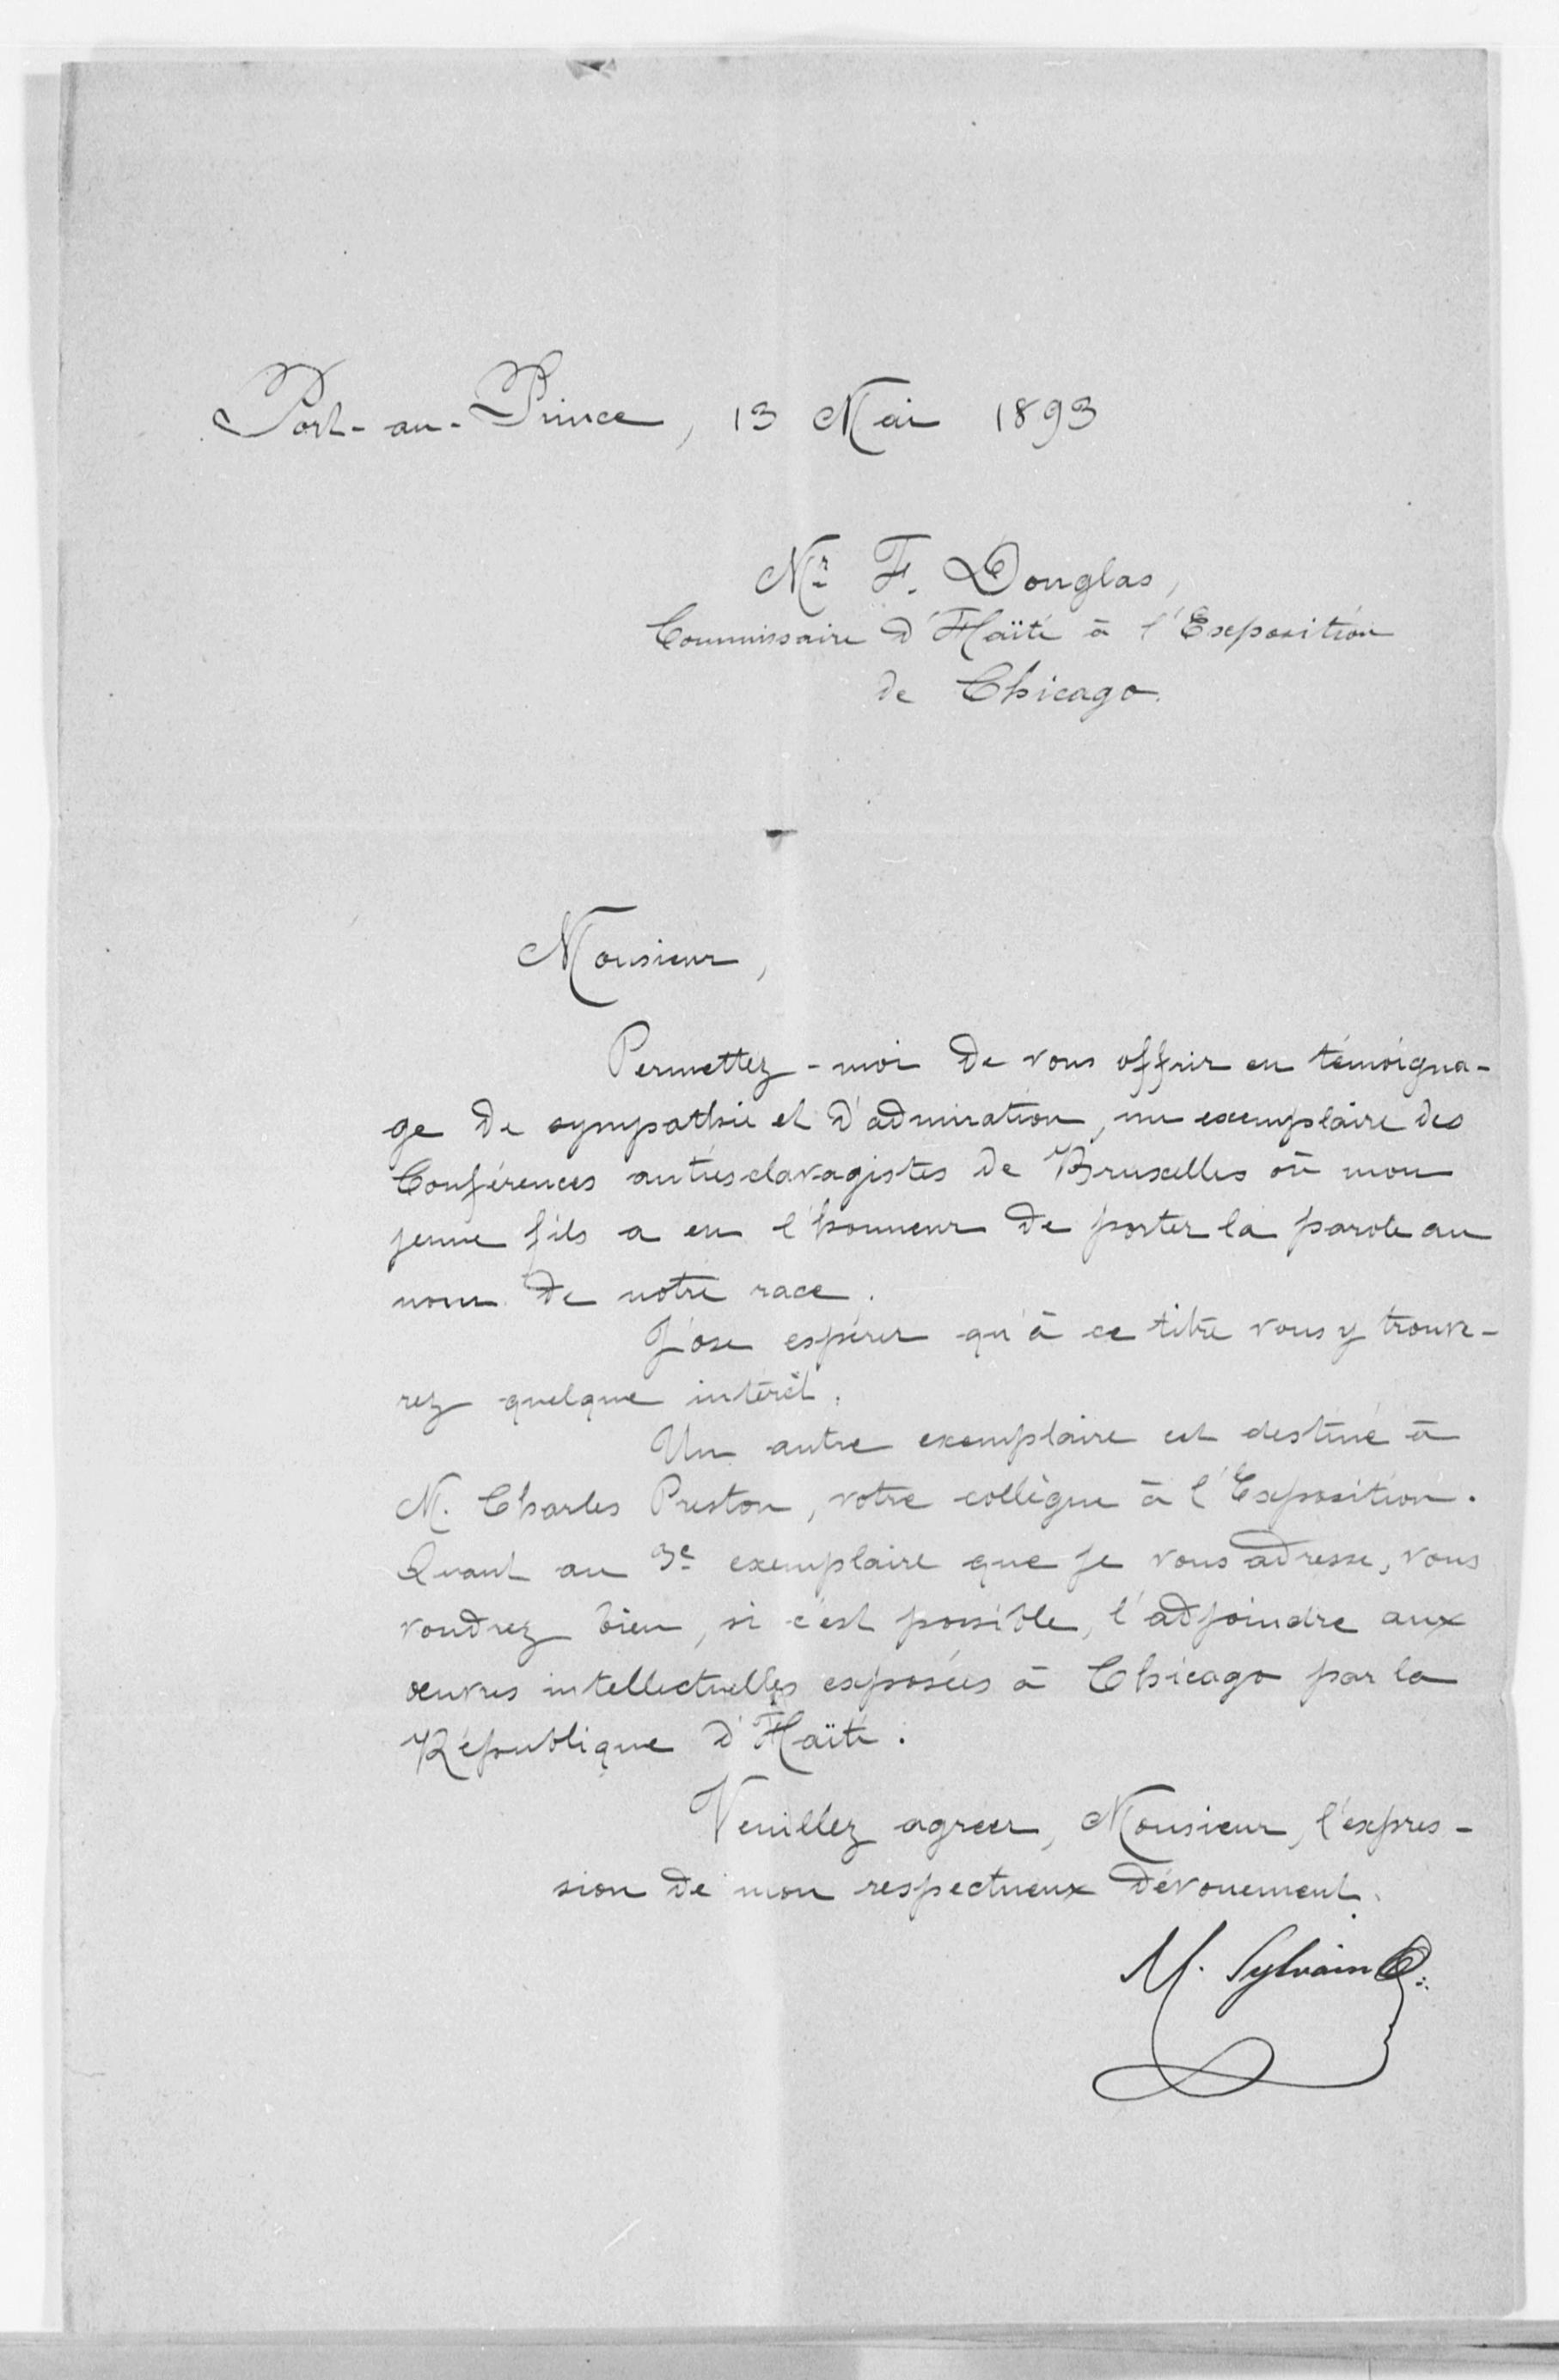 Port-au-Prince, 13 Mai 1893
Mr F. Douglas,
Commissaire d'Haïti à l'Exposition
de Chicago.
Monsieur,
Permettez-moi de vous offrir en témoigna-
ge de sympathie et d'admiration, un exemplaire des
Conférences antiesclavagistes de Bruxelles où mon
jeune fils a eu l'honneur de porter la parole au
nom de notre race.
J'ose espérer qu'à ce titre vous y trouve-
rez quelque intérêt.
Un autre exemplaire est destiné à
M. Charles Preston, votre collègue à l'Exposition.
Quant au 3e exemplaire que je vous adresse, vous
voudrez bien, si c'est possible, l'adjoindre aux
œuvres intellectuelles exposées à Chicago par la
République d'Haïti.
Veuillez agréer, Monsieur, l'expres-
sion de mon respectueux dévouement.
M. Sylvain